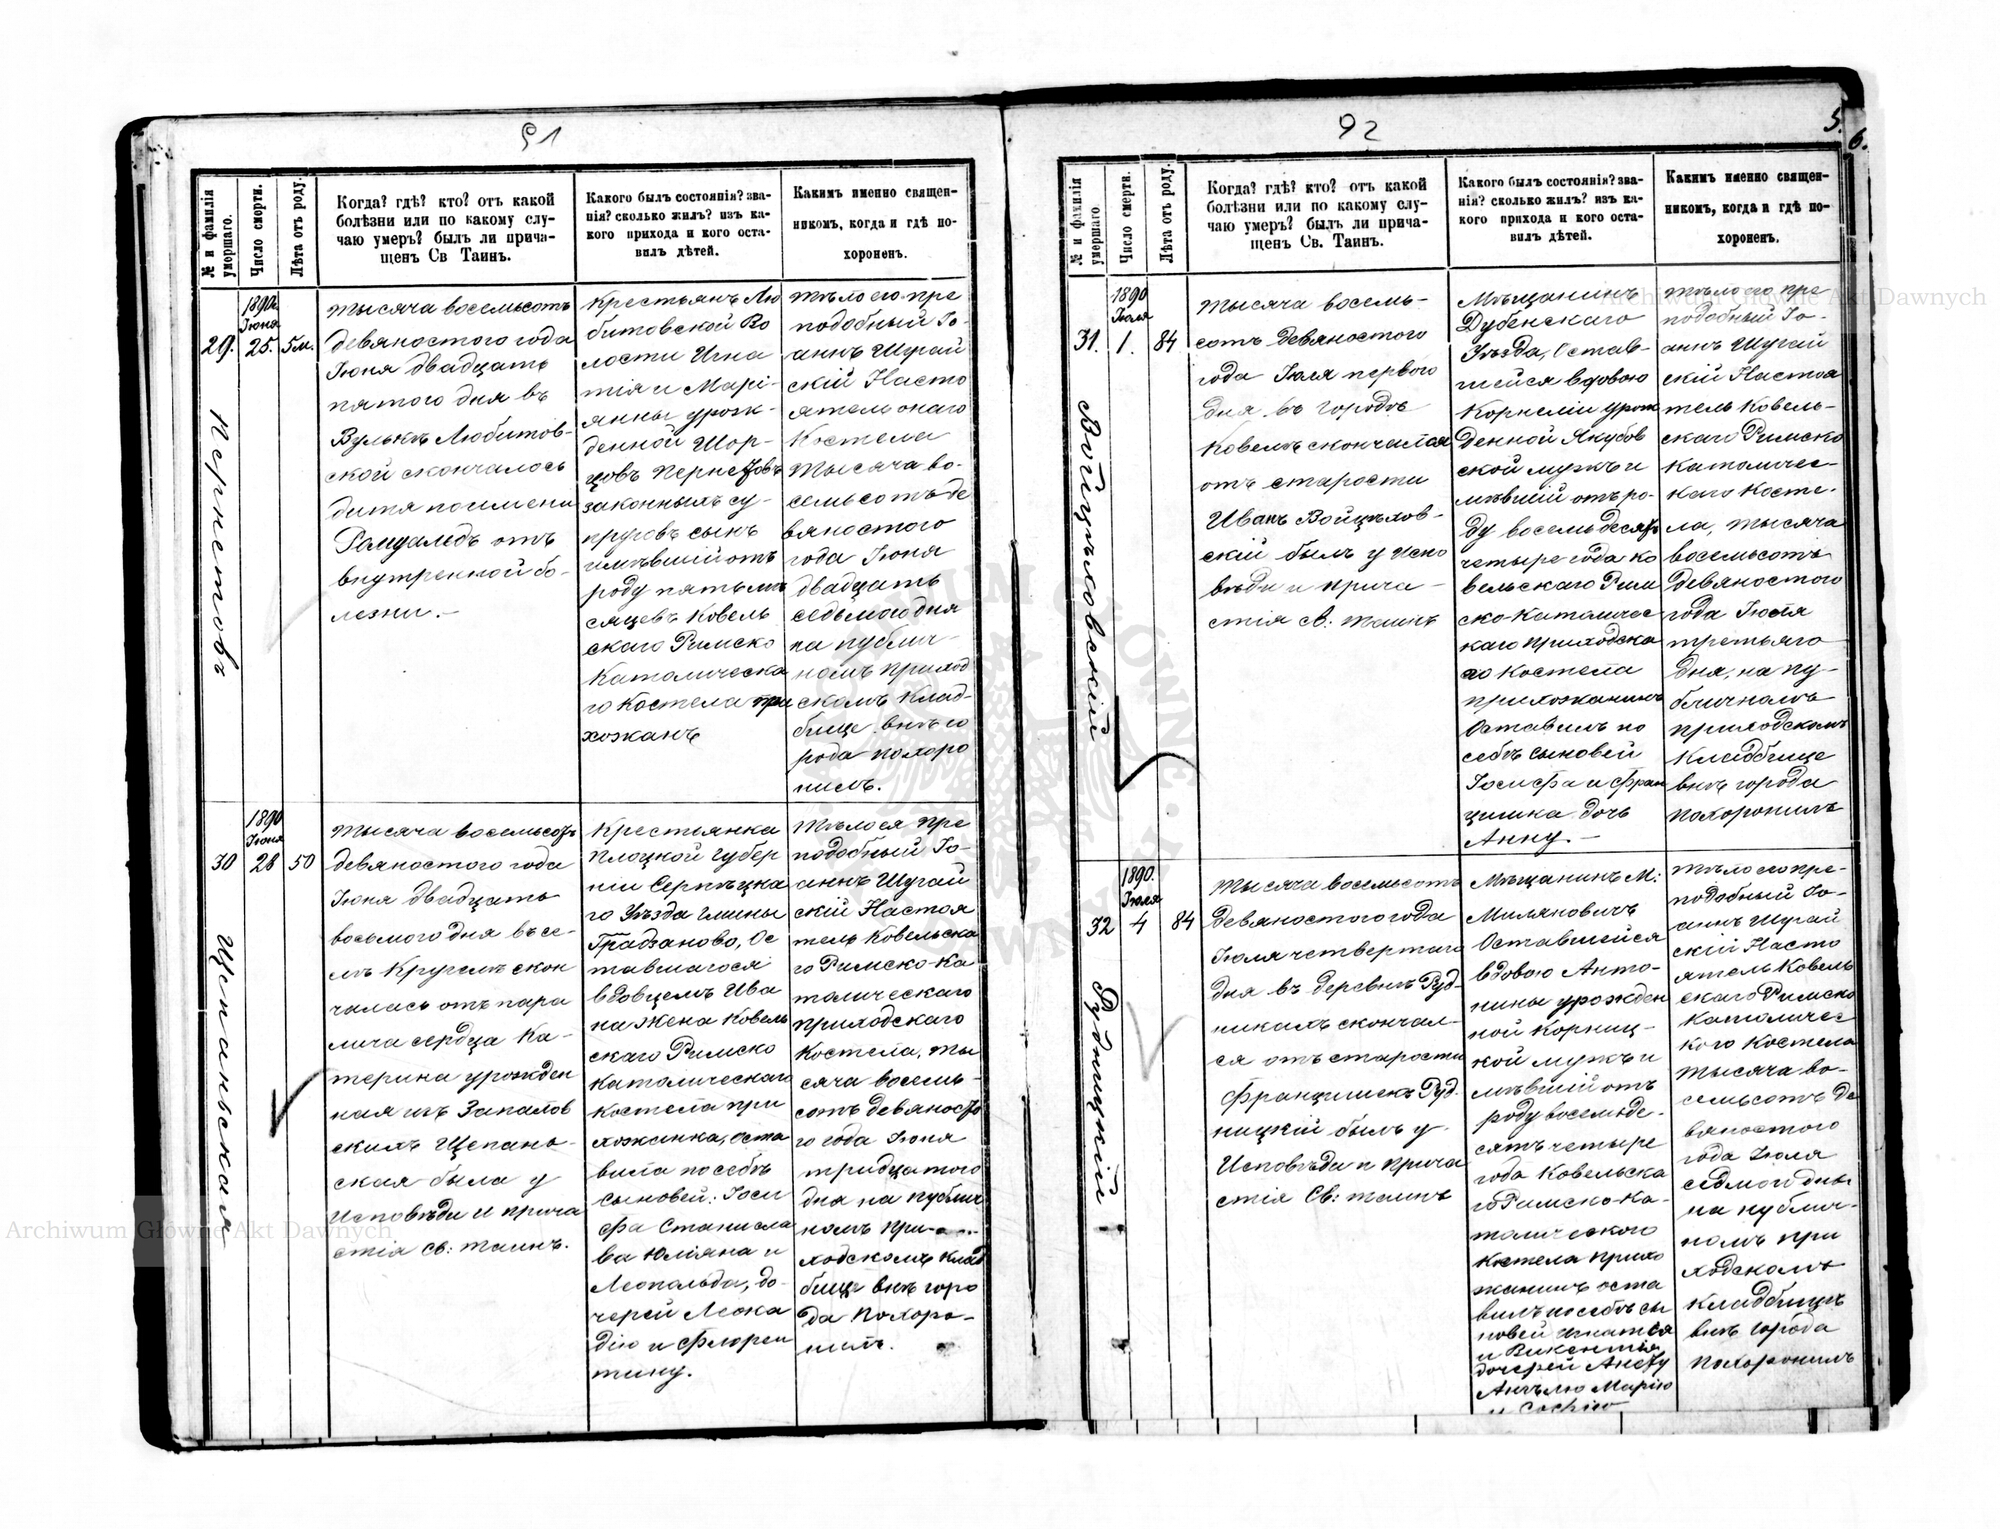 91
№ и фамилія умершаго.
Число смерти.
Лѣта отъ роду.
Когда? гдѣ? кто? отъ какой
болѣзни или по какому слу-
чаю умеръ? былъ ли прича-
щенъ Св Таинъ.
Какого былъ состоянія? зва-
нія? сколько жилъ? изъ ка-
кого прихода и кого оста-
вилъ дѣтей.
Какимъ именно священ-
никомъ, когда и гдѣ по-
хороненъ.
29.
Пернетовъ
1890.
Іюня
25.
5м.
тысяча восемьсотъ
девяностого года
Іюня двадцать
пятого дня въ
Вулькѣ Любитов-
ской скончалось
дитя по имени
Ромуальдъ отъ
внутренной бо-
лезни.-
Крестьянъ Лю
битовской Во
лости Игна
тія и Марі-
янны урож-
денной Шор-
цовъ Пернетовъ
законныхъ су-
пруговъ сынъ
имѣвшій отъ
роду пять мѣ
сяцевъ Ковель
скаго Римско
Католическа
го Костела при
хожанъ
тѣло его пре
подобный Іо-
аннъ Шугай
скій Насто
ятель онаго
Костела
тысяча во-
семьсотъ де
вяностого
года Іюня
двадцать
седьмого дня
на публич-
номъ приход
скомъ клад-
бище внѣ го
рода похоро
нилъ.
30
Щепаньская
1890
Іюня
28
50
тысяча восемьсотъ
девяностого года
Іюня двадцать
восьмого дня въ се-
лѣ Кругелѣ скон
чалась отъ пара
лича сердца Ка-
терина урожден
ная изъ Запалов
скихъ Щепань-
ская была у
Исповѣди и прича
стія св: таинъ.
Крестьянка
Плоцкой Губер
ніи Серпѣцка
го Уѣзда гмины
Градзаново, Ос
тавшагося
вдовцемъ Ива
на жена Ковель
скаго Римско
Католическаго
костела при
хожанка, оста
вила по себѣ
сыновей: Іоси
фа Станисла
ва Юліяна и
Леопольда, до-
черей Леока
дію и Флорен
тину.
тѣло ея пре
подобный Іо-
аннъ Шугай
скій Настоя
тель Ковельска
го Римско-Ка
толическаго
приходскаго
Костела, ты
сяча восемь-
сотъ девяносто
го года Іюня
тридцатого
дня на публич
номъ при-
ходскомъ клад
бище внѣ горо
да похоро-
нилъ.
92
5.
6.
№ и фамилія умершаго.
Число смерти.
Лѣта отъ роду.
Когда? гдѣ? кто? отъ какой
болѣзни или по какому слу-
чаю умеръ? былъ ли прича-
щенъ Св. Таинъ.
Какого былъ состоянія? зва-
нія? сколько жилъ? изъ ка-
кого прихода и кого оста-
вилъ дѣтей.
Какимъ именно священ-
никомъ, когда и гдѣ по-
хороненъ.
31.
Войцѣховскій
1890
Іюля
1.
84
тысяча восемь-
сотъ девяностого
года Іюля первого
дня въ городѣ
Ковелѣ скончался
отъ старости
Иванъ Войцѣхов-
скій былъ у Испо
вѣди и прича-
стія св: таинъ
Мѣщанинъ
Дубенскаго
Уѣзда, Остав-
шейся вдовою
Корнеліи урож
денной Якубов
ской мужъ и
мѣвший отъ ро-
ду восемьдесятъ
четыре года ко
вельскаго Рим
ско-Католичес
каго приходска
го Костела
прихожанинъ
Оставилъ по
себѣ сыновей
Іосифа и Фран
цишка дочь
Анну.-
тѣло его пре
подобный Іо-
аннъ Шугай
скій Настоя
тель Ковель-
скаго Римско
Католичес-
каго Косте-
ла, тысяча
восемьсотъ
девяностого
года Іюля
третьяго
дня, на пу-
бличномъ
приходскомъ
Кладбище
внѣ города
похоронилъ
32
Рудницкій
1890.
Іюля
4
84
тысяча восемьсотъ
девяностого года
Іюля четвертаго
дня въ деревнѣ Руд-
никахъ скончал-
ся отъ старости
Францишекъ Руд-
ницкій былъ у
Исповѣди и прича
стія Св: таинъ
Мѣщанинъ М:
Миляновичъ
Оставшейся
вдовою Анто-
нины урожден
ной Корниц-
кой мужъ и
мѣвшій отъ
роду восемьде-
сятъ четыре
года Ковельска
го Римско-Ка-
толического
Костела прихо
жанинъ оста
вилъ по себѣ сы
новей Игнатія
и Викентія
дочерей Анету
Анѣлю Марію
и Софію
тѣло его пре-
подобный Іо-
аннъ Шугай
скій Насто
ятель Ковель
скаго Римско
Католичес
кого Костела
тысяча во-
семьсотъ де
вяностого
года Іюля
седмого дны
на публич-
номъ при
ходскомъ
кладбищѣ
внѣ города
похоронилъ
Archiwum Główne Akt Dawnych
Archiwum Główne Akt Dawnych